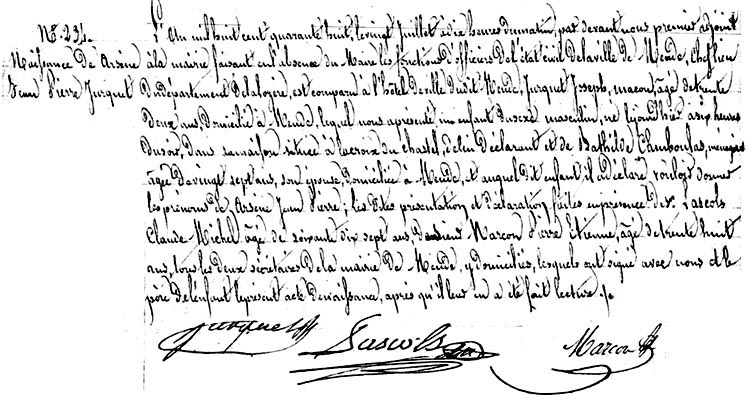 N.° 234.
Naissance de Arsène
Jean Pierre Jurquet
L'An mil huit cent quarante huit, le vingt Juillet à dix heures du matin, par devant nous premier adjoint
à la mairie faisant en l'absence du Maire les fonctions d'officier de l'état civil de la ville de Mende, Chef lieu
du département de la lozère, est comparu à l'hôtel de ville dudit Mende, Jurquet Joseph, maçon, âgé de trente
deux ans, domicilié à Mende, lequel nous a présenté un enfant du sexe masculin, né le jour d'hier à six heures
du soir, dans sa maison située à lacroix du chastel, de lui déclarant et de Bathilde Chambouſas, ménagère
âgée de vingt sept ans, son épouse, domiciliée à Mende, et auquel dit enfant il a déclaré vouloir donner
les prénoms de Arsène Jean Pierre; les dites présentation et déclaration faites en présence de Sr. Lascols
Claude Michel âgé de soixante dix sept ans, de sieur Marcon Pierre Etienne, âgé de trente huit
ans, tous les deux sécrétaires de la mairie de Mende, y domiciliés, lesquels ont signé avec nous et le
père de l'enfant le présent acte de naissance, après qu'il leur en a été fait lecture ./.
Jurquet Lascols Marcon